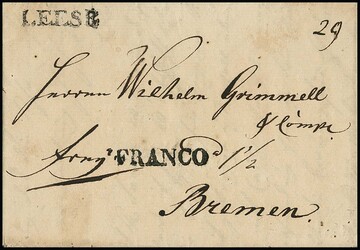 LEESE
29
Herren Wilhelm Grimmell
& Comp.
FRANCO 1 1/2
Bremen.